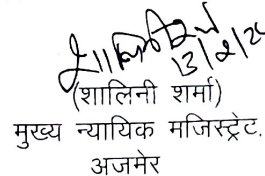 13/2/25
(शालिनी शर्मा)
मुख्य न्यायिक मजिस्ट्रेट,
अजमेर